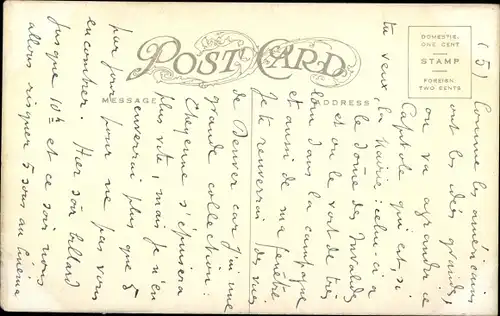 POST CARD
MESSAGE
ADDRESS
DOMESTIC.
ONE CENT
STAMP
FOREIGN
TWO CENTS
(5)
Comme les américains
ont les idées grandes,
on va agrandir ce
Capitole qui est, si
tu veux la Mairie; celui-ci a
le dôme des Invalides
et on le voit de très
loin dans la campagne
et aussi de ma fenêtre
Je te renverrai des vues
de Denver car j'ai une
grande collection.
Cheyenne s'épuisera
plus vite, mais je n'en
enverrai plus que 5
par jour pour ne pas vous
encombrer. Hier soir billard
jusque 10h et ce soir nous
allons risquer 5 sous au Cinéma